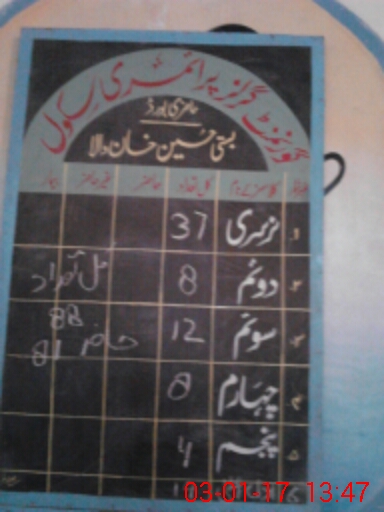 گورنمنٹ گرلز پرائمری سکول
حاضری بورڈ
بستی حسین خان والا
نمبرشمار کلاسز کے نام کل تعداد حاضر غیر حاضر بیمار
1 نرسری 37
2 دوئم 8 کل تعداد
3 سوئم 12 88
حاضر 81
4 چہارم 8
5 پنجم 4
03-01-17 13:47